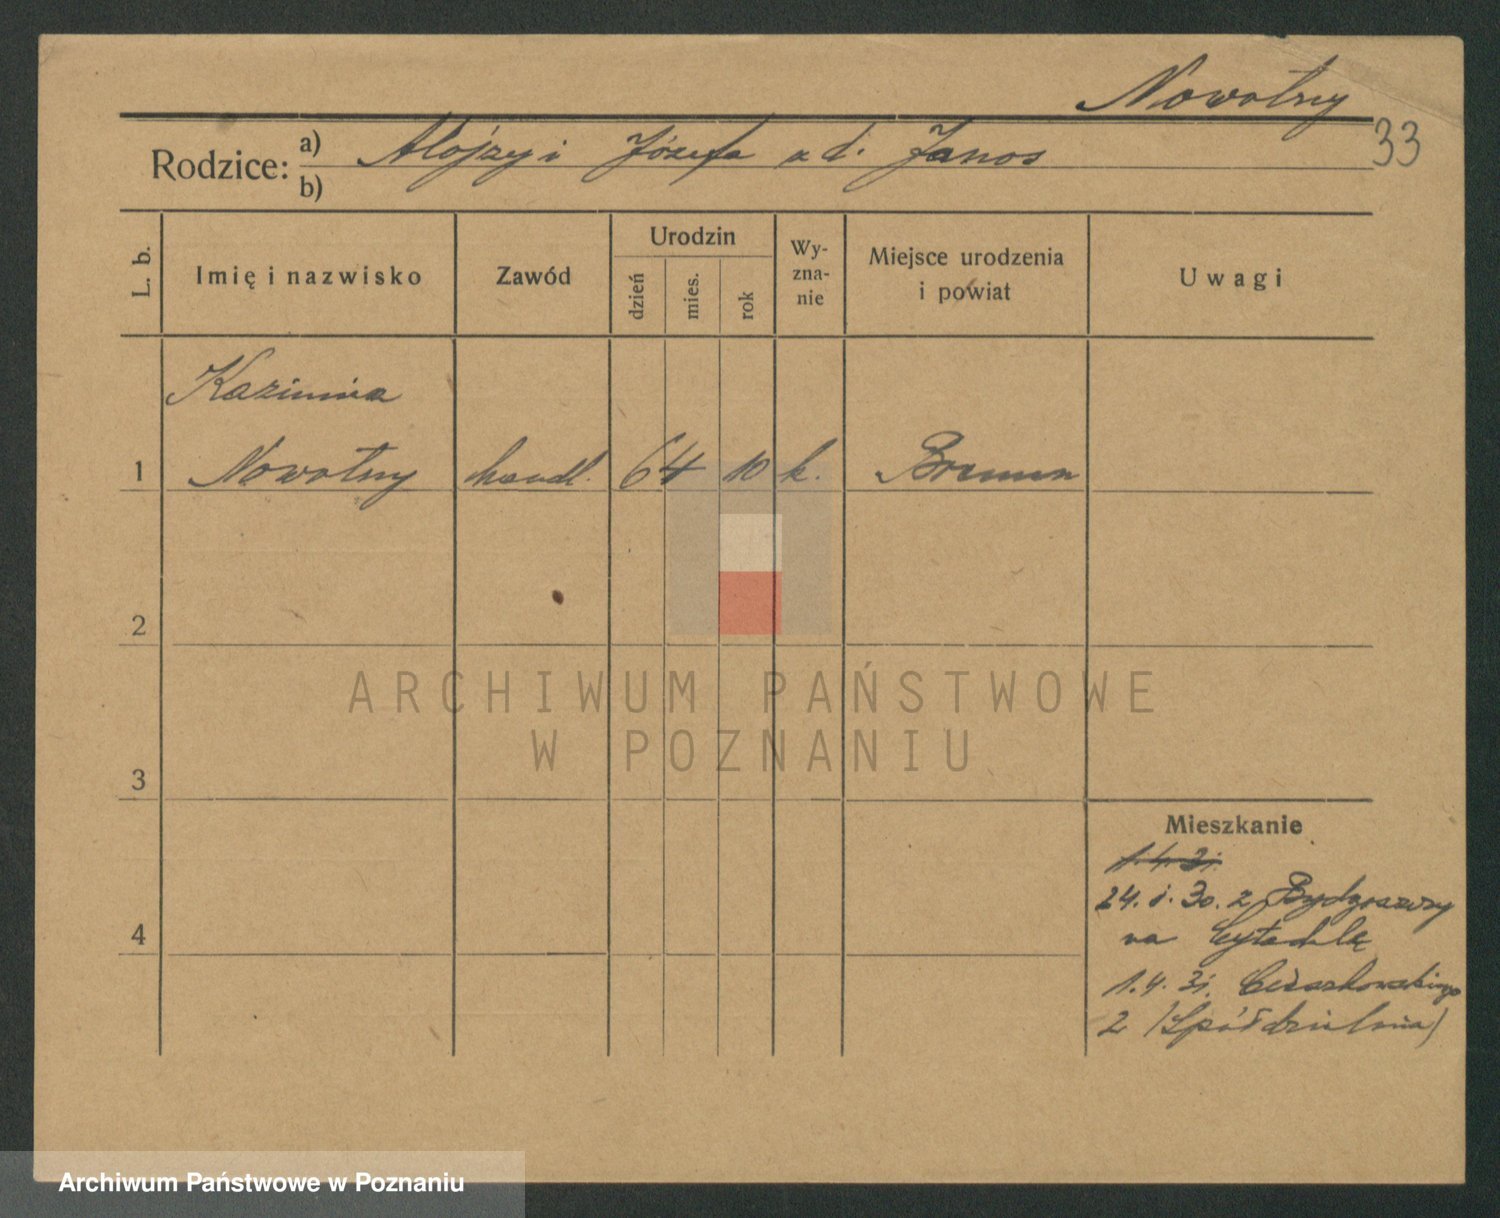 Nowotny
33
Rodzice: a) Alojzy i Józefa z d. Janos
b)
L. b.
Imię i nazwisko
Zawód
Urodzin
dzień
mies.
rok
Wy-
zna-
nie
Miejsce urodzenia
i powiat
Uwagi
Kazimira
1 Nowotny handl. 6 4 10 k. Bremen
2
ARCHIWUM PAŃSTWOWE
W POZNANIU
3
Mieszkanie
1.4.31.
24. 1. 30. z Bydgoszczy
4
na Cytadlę
1.4. 31.
2 (Spółdzielnia)
Archiwum Państwowe w Poznaniu